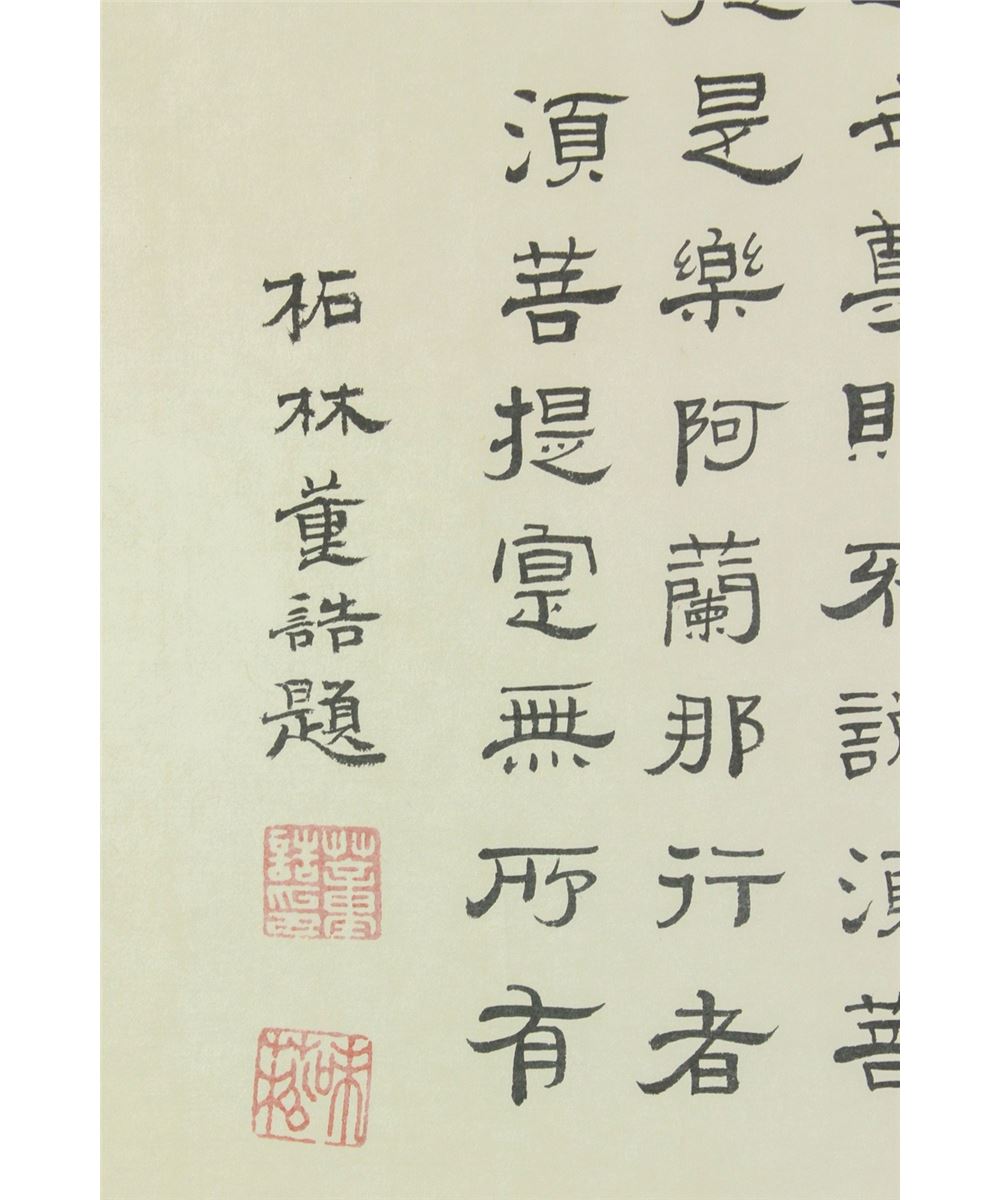 尊則不說須菩
是樂阿蘭那行者
須菩提寔無所有
柘林董誥題
董誥印